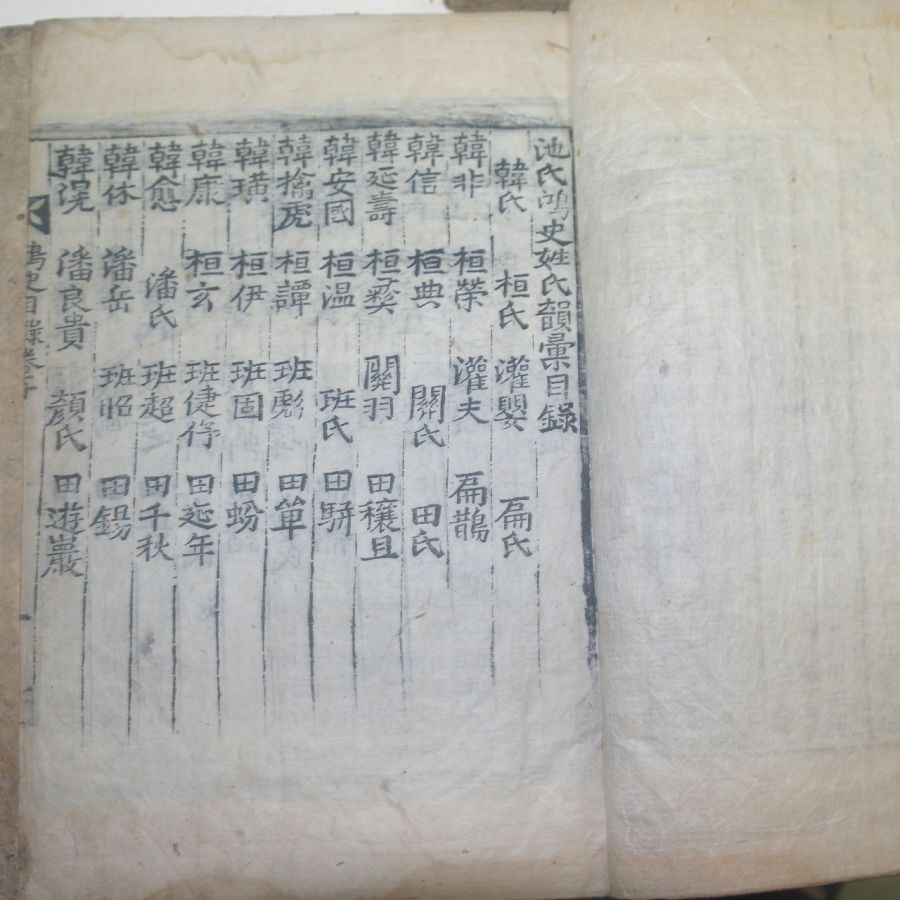 池氏鴻史姓氏韻彙目錄
韓氏 桓氏 灌嬰 扁氏
韓非 桓榮 灌夫 扁鵲
韓信 桓典 關氏 田氏
韓延壽 桓彛 關羽 田穰苴
韓安國 桓温 班氏 田騈
韓擒虎 桓譚 班彪 田單
韓璜 桓伊 班固 田蚡
韓康 桓玄 班倢伃 田延年
韓愈 潘氏 班超 田千秋
韓休 潘岳 班昭 田錫
韓滉 潘良貴 顏氏 田遊巖
鴻史目錄卷